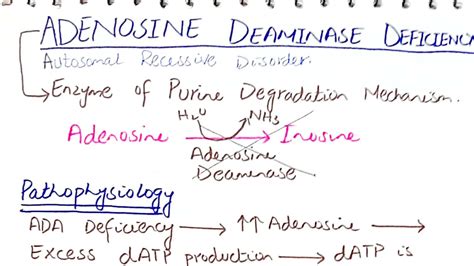 ADENOSINE DEAMINASE DEFICIENC
Autosomal Recessive Disorder.
Enzyme of Purine Degradation Mechanism.
H₂O NH₃
Adenosine → Inosine
Adenosine
Deaminase
Pathophysiology
ADA Deficiency → ↑↑ Adenosine →
Excess dATP production → dATP is